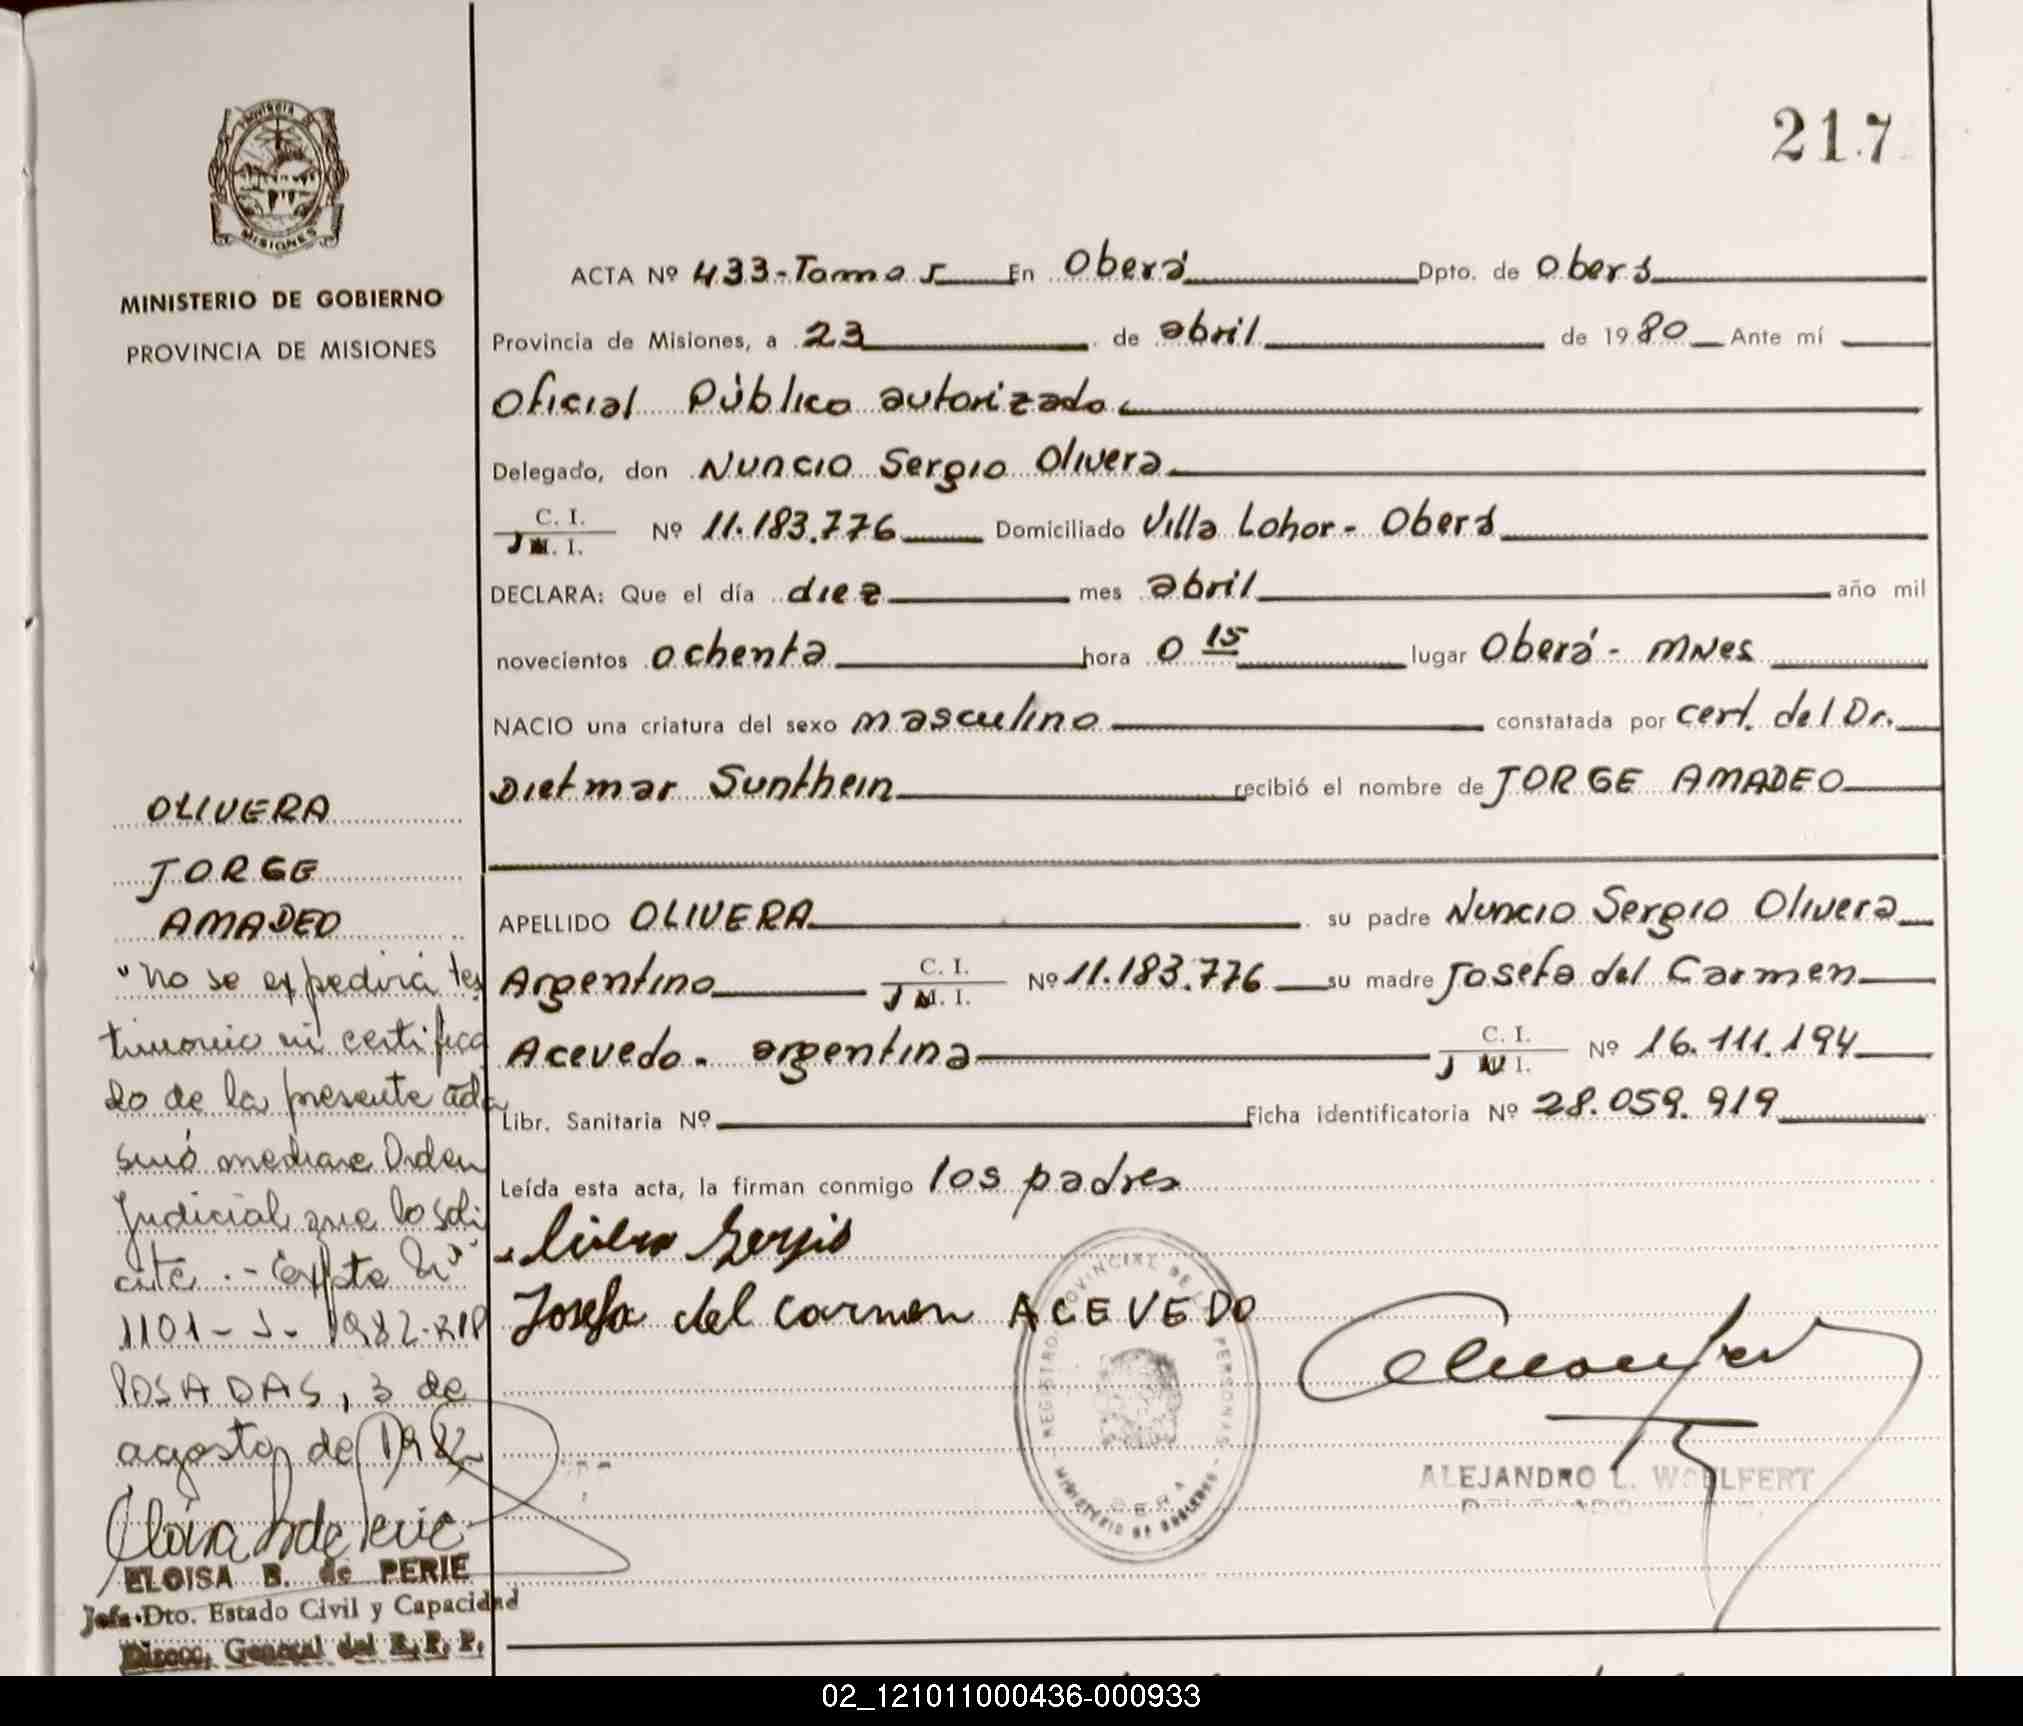 217
PROVINCIA DE
MISIONES
MINISTERIO DE GOBIERNO
PROVINCIA DE MISIONES
ACTA Nº 433-Tomo I En Oberá Dpto. de Oberá
Provincia de Misiones, a 23 de abril de 1980 Ante mí
Oficial Público autorizado
Delegado, don Nuncio Sergio Olivera
C. I.
M. I. Nº 11.183.776 Domiciliado Villa Lohor - Oberá
DECLARA: Que el día diez mes abril año mil
novecientos ochenta hora 0 15 lugar Oberá - MNes
NACIO una criatura del sexo masculino constatada por cert. del Dr.
Dietmar Sunthein recibió el nombre de JORGE AMADEO
APELLIDO OLIVERA su padre Nuncio Sergio Olivera
Argentino C. I. M. I. Nº 11.183.776 su madre Josefa del Carmen
Acevedo - argentina C. I. M. I. Nº 16.111.194
Libr. Sanitaria Nº Ficha identificatoria Nº 28.059.919
Leída esta acta, la firman conmigo los padres
Sergio
Josefa del Carmen ACEVEDO
REGISTRO PROVINCIAL DE LAS PERSONAS
OBERA
MINISTERIO DE GOBIERNO
ALEJANDRO L. WOLFERT
DELEGADO
OLIVERA
JORGE
AMADEO
"No se expedirá tes
timonio ni certifica
do de la presente acta
sinó mediare Orden
Judicial que lo soli
cite.- Expte Nº
1101-J-1982-RIP
POSADAS, 3 de
agosto de 1982
ELOISA B. de PERIE
Jefa Dto. Estado Civil y Capacidad
Direcc. General del R. P. P.
02_121011000436-000933